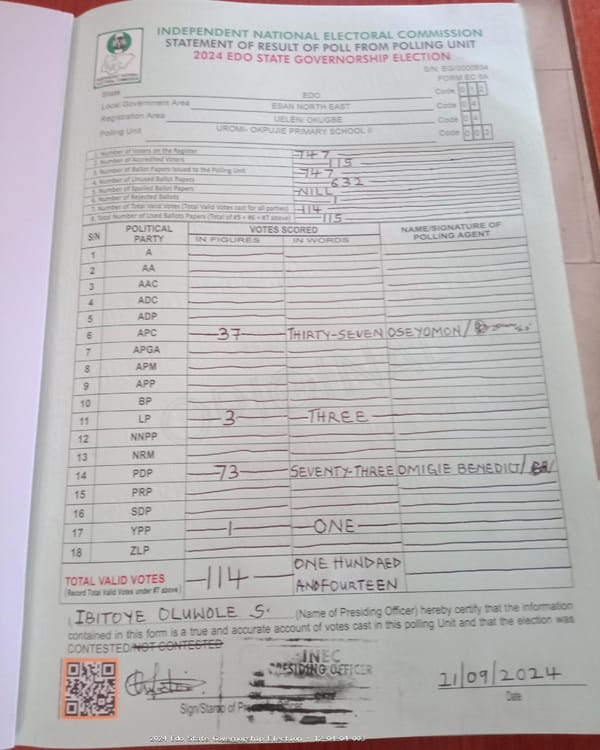 INDEPENDENT NATIONAL ELECTORAL COMMISSION
STATEMENT OF RESULT OF POLL FROM POLLING UNIT
2024 EDO STATE GOVERNORSHIP ELECTION
S/N: EG/0000934
FORM EC 8A
State EDO Code 012
Local Government Area ESAN NORTH EAST Code 04
Registration Area UELEN/ OKUGBE Code 04
Polling Unit UROMI- OKPUJIE PRIMARY SCHOOL II Code 003
1. Number of Voters on the Register 747
2. Number of Accredited Voters 115
3. Number of Ballot Papers Issued to the Polling Unit 747
4. Number of Unused Ballot Papers 632
5. Number of Spoiled Ballot Papers NILL
6. Number of Rejected Ballots 1
7. Number of Total Valid Votes (Total Valid Votes cast for all parties) 114
8. Total Number of Used Ballots Papers (Total of #5 + #6 + #7 above) 115
S/N POLITICAL PARTY VOTES SCORED NAME/SIGNATURE OF POLLING AGENT
IN FIGURES IN WORDS
1 A
2 AA
3 AAC
4 ADC
5 ADP
6 APC 37 THIRTY-SEVEN OSEYOMON/
7 APGA
8 APM
9 APP
10 BP
11 LP 3 THREE
12 NNPP
13 NRM
14 PDP 73 SEVENTY-THREE OMIGIE BENEDICT/
15 PRP
16 SDP
17 YPP 1 ONE
18 ZLP
TOTAL VALID VOTES 114 ONE HUNDRED
(Record Total Valid Votes under #7 above) AND FOURTEEN
I IBITOYE OLUWOLE S. (Name of Presiding Officer) hereby certify that the information
contained in this form is a true and accurate account of votes cast in this polling Unit and that the election was
CONTESTED/NOT CONTESTED
INEC
PRESIDING OFFICER
21/09/2024
Sign/Stamp of Presiding Officer Date
2024 Edo State Governorship Election - 12-04-04-003